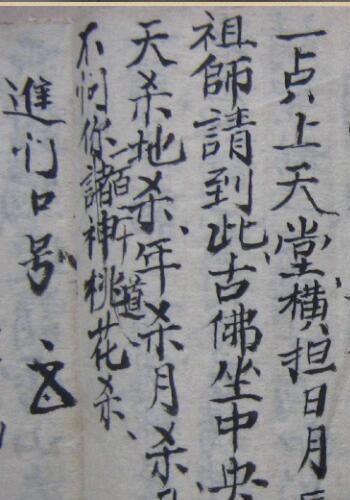 一点上天堂橫担日月
祖師請到此、古佛坐中央
天杀地杀、年杀月杀、
不问你諸神桃花杀、
進们口号